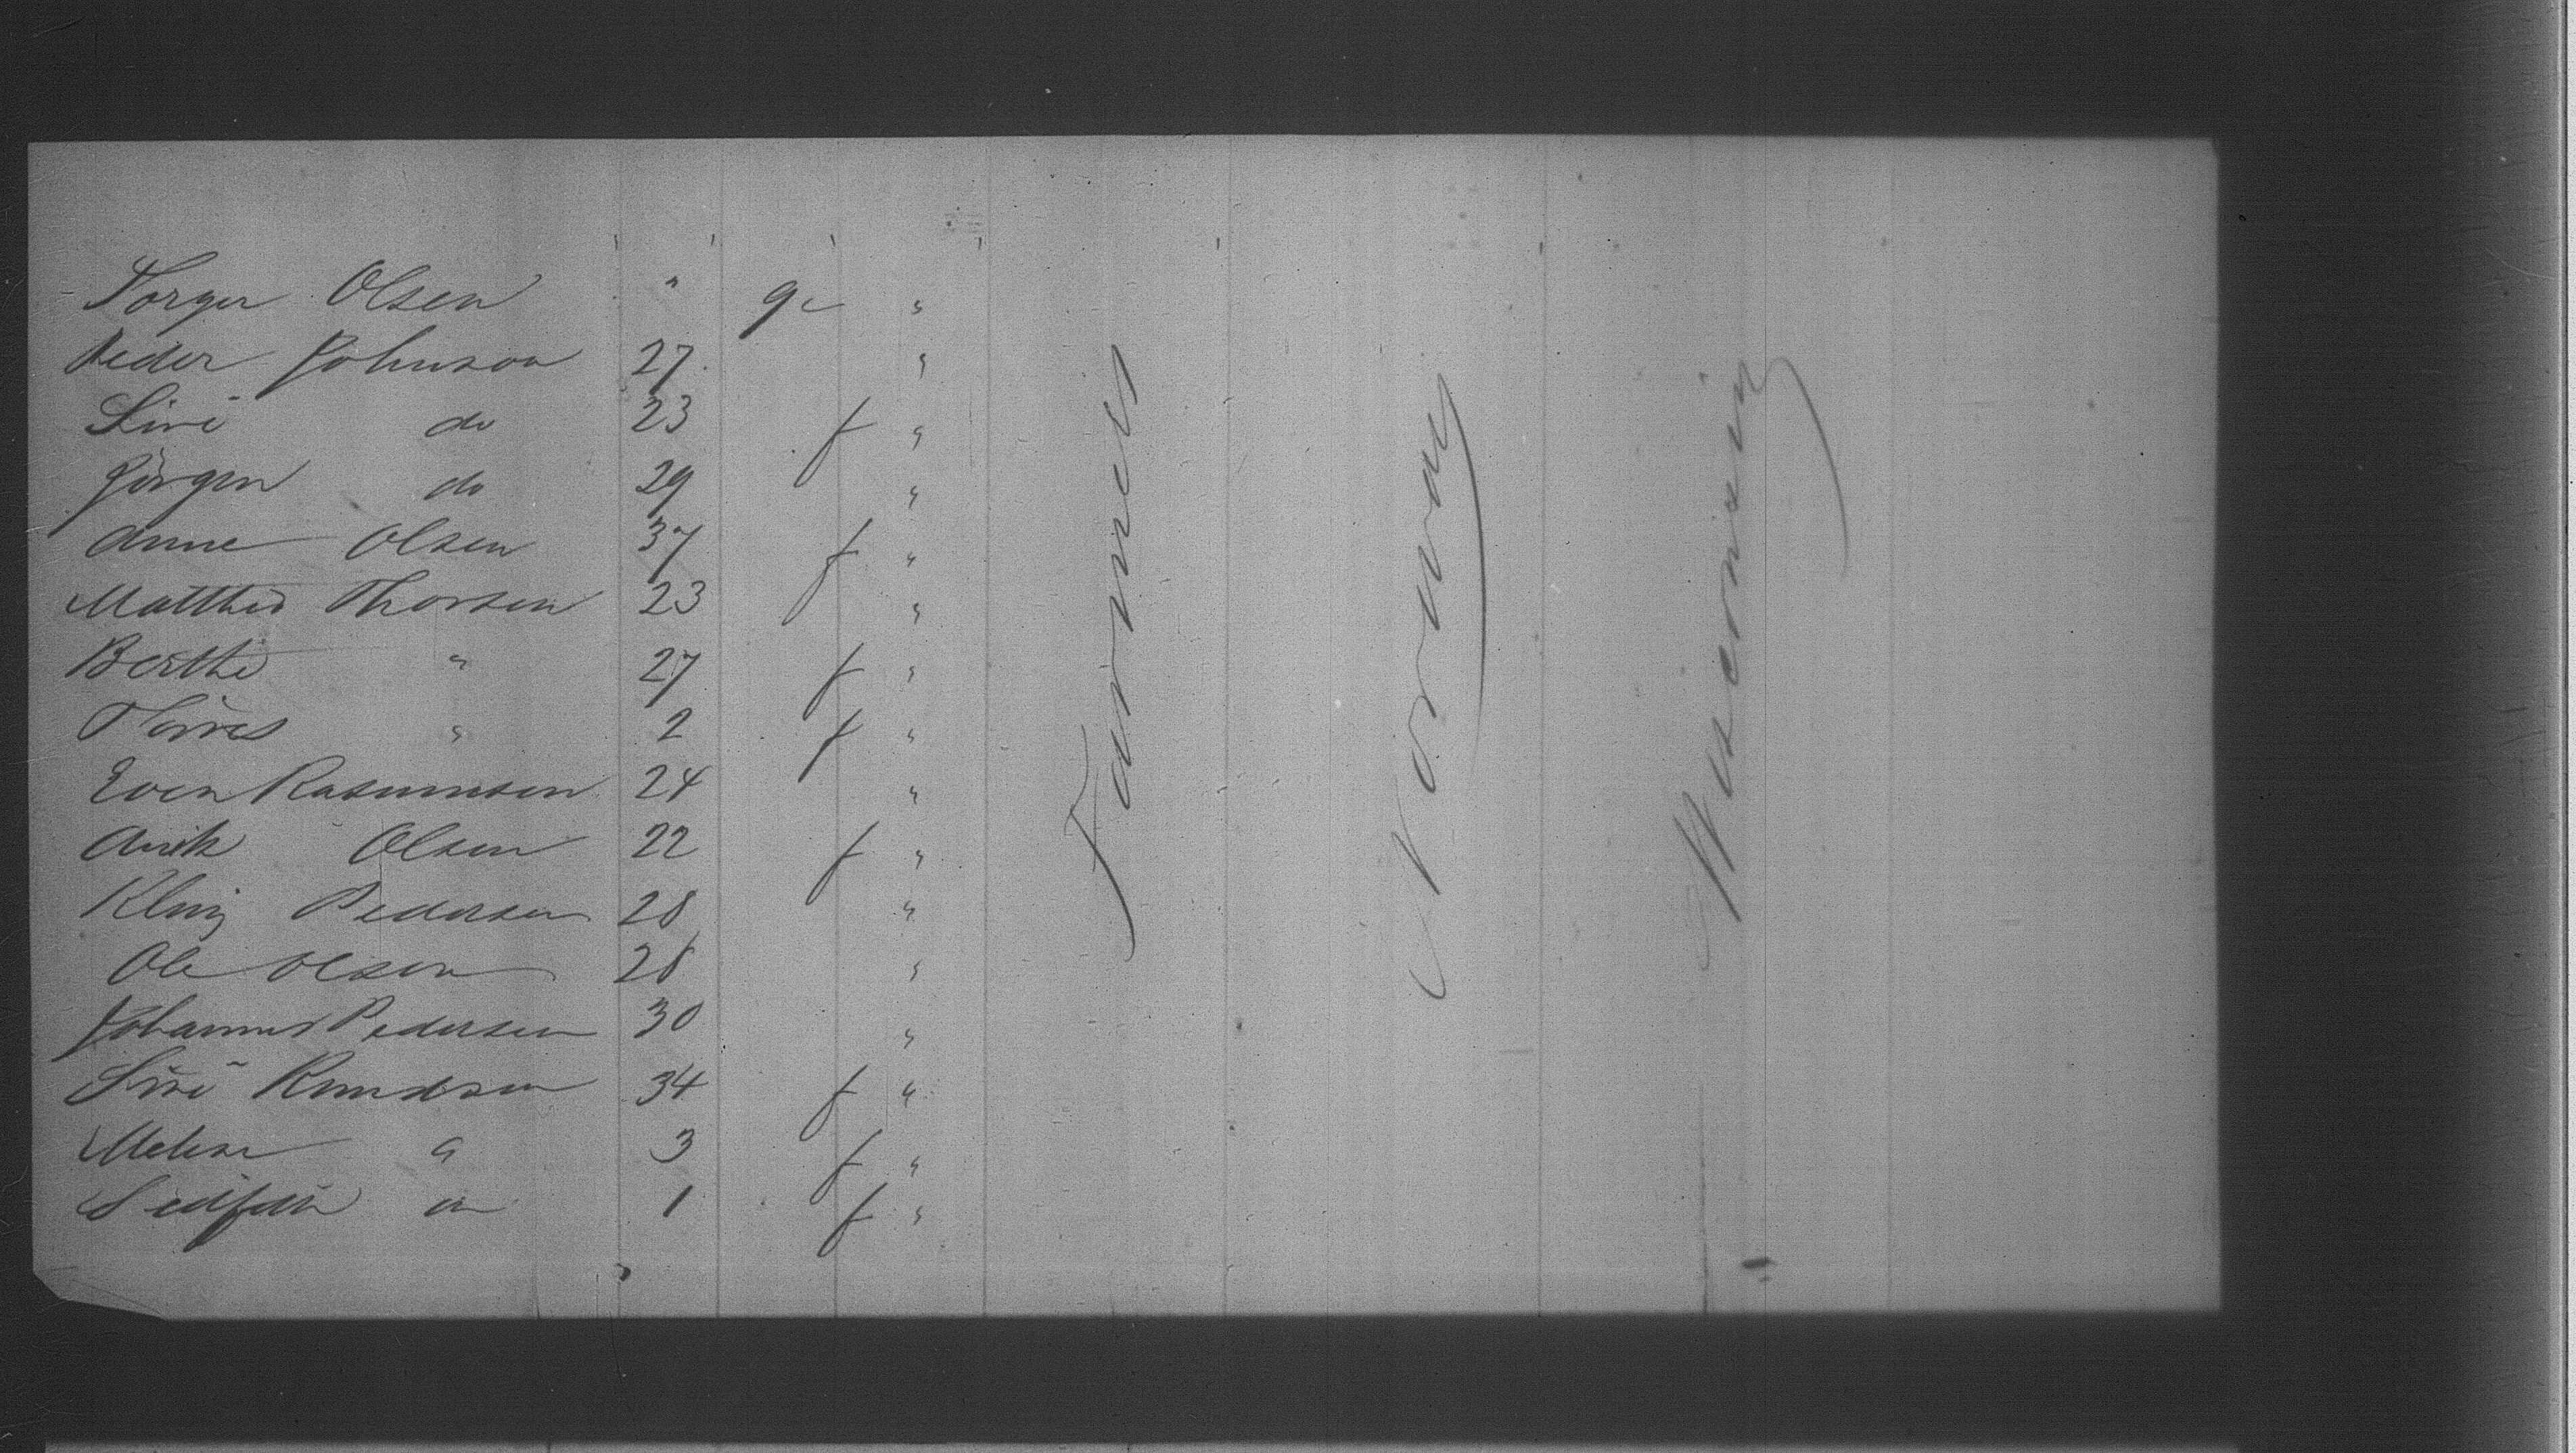 Torger Olsen " 9 "
Peder Johnson 27 "
Siri do 23 f "
Jörgen do 29 "
Anne Olsen 37 f "
Matthis Thorsen 23 "
Berthe " 27 f "
Törres " 2 f "
Even Rasmusen 24 "
Olsen 22 f "
Pedersen 28 "
Ole Olsen 28 "
Johannes Pedersen 30 "
Siri Knudsen 34 f "
" 3 f "
1 f "
Farmers
Norway
Wisconsin